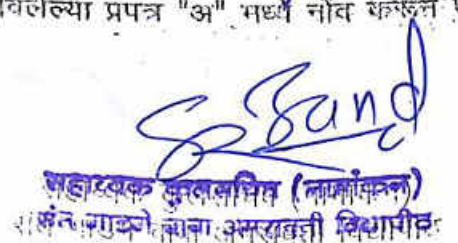 प्रपत्र "अ" मध्ये नोंद करून
S Band
सहाय्यक कुलसचिव (नामांकन)
संत गाडगे बाबा अमरावती विद्यापीठ